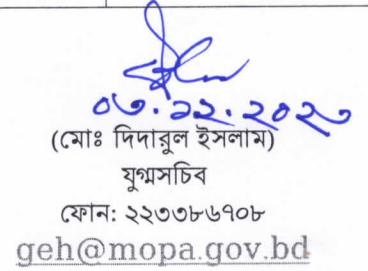 ০৩.১২.২০২৩
(মোঃ দিদারুল ইসলাম)
যুগ্মসচিব
ফোন: ২২৩৩৮৬৭০৮
geh@mopa.gov.bd